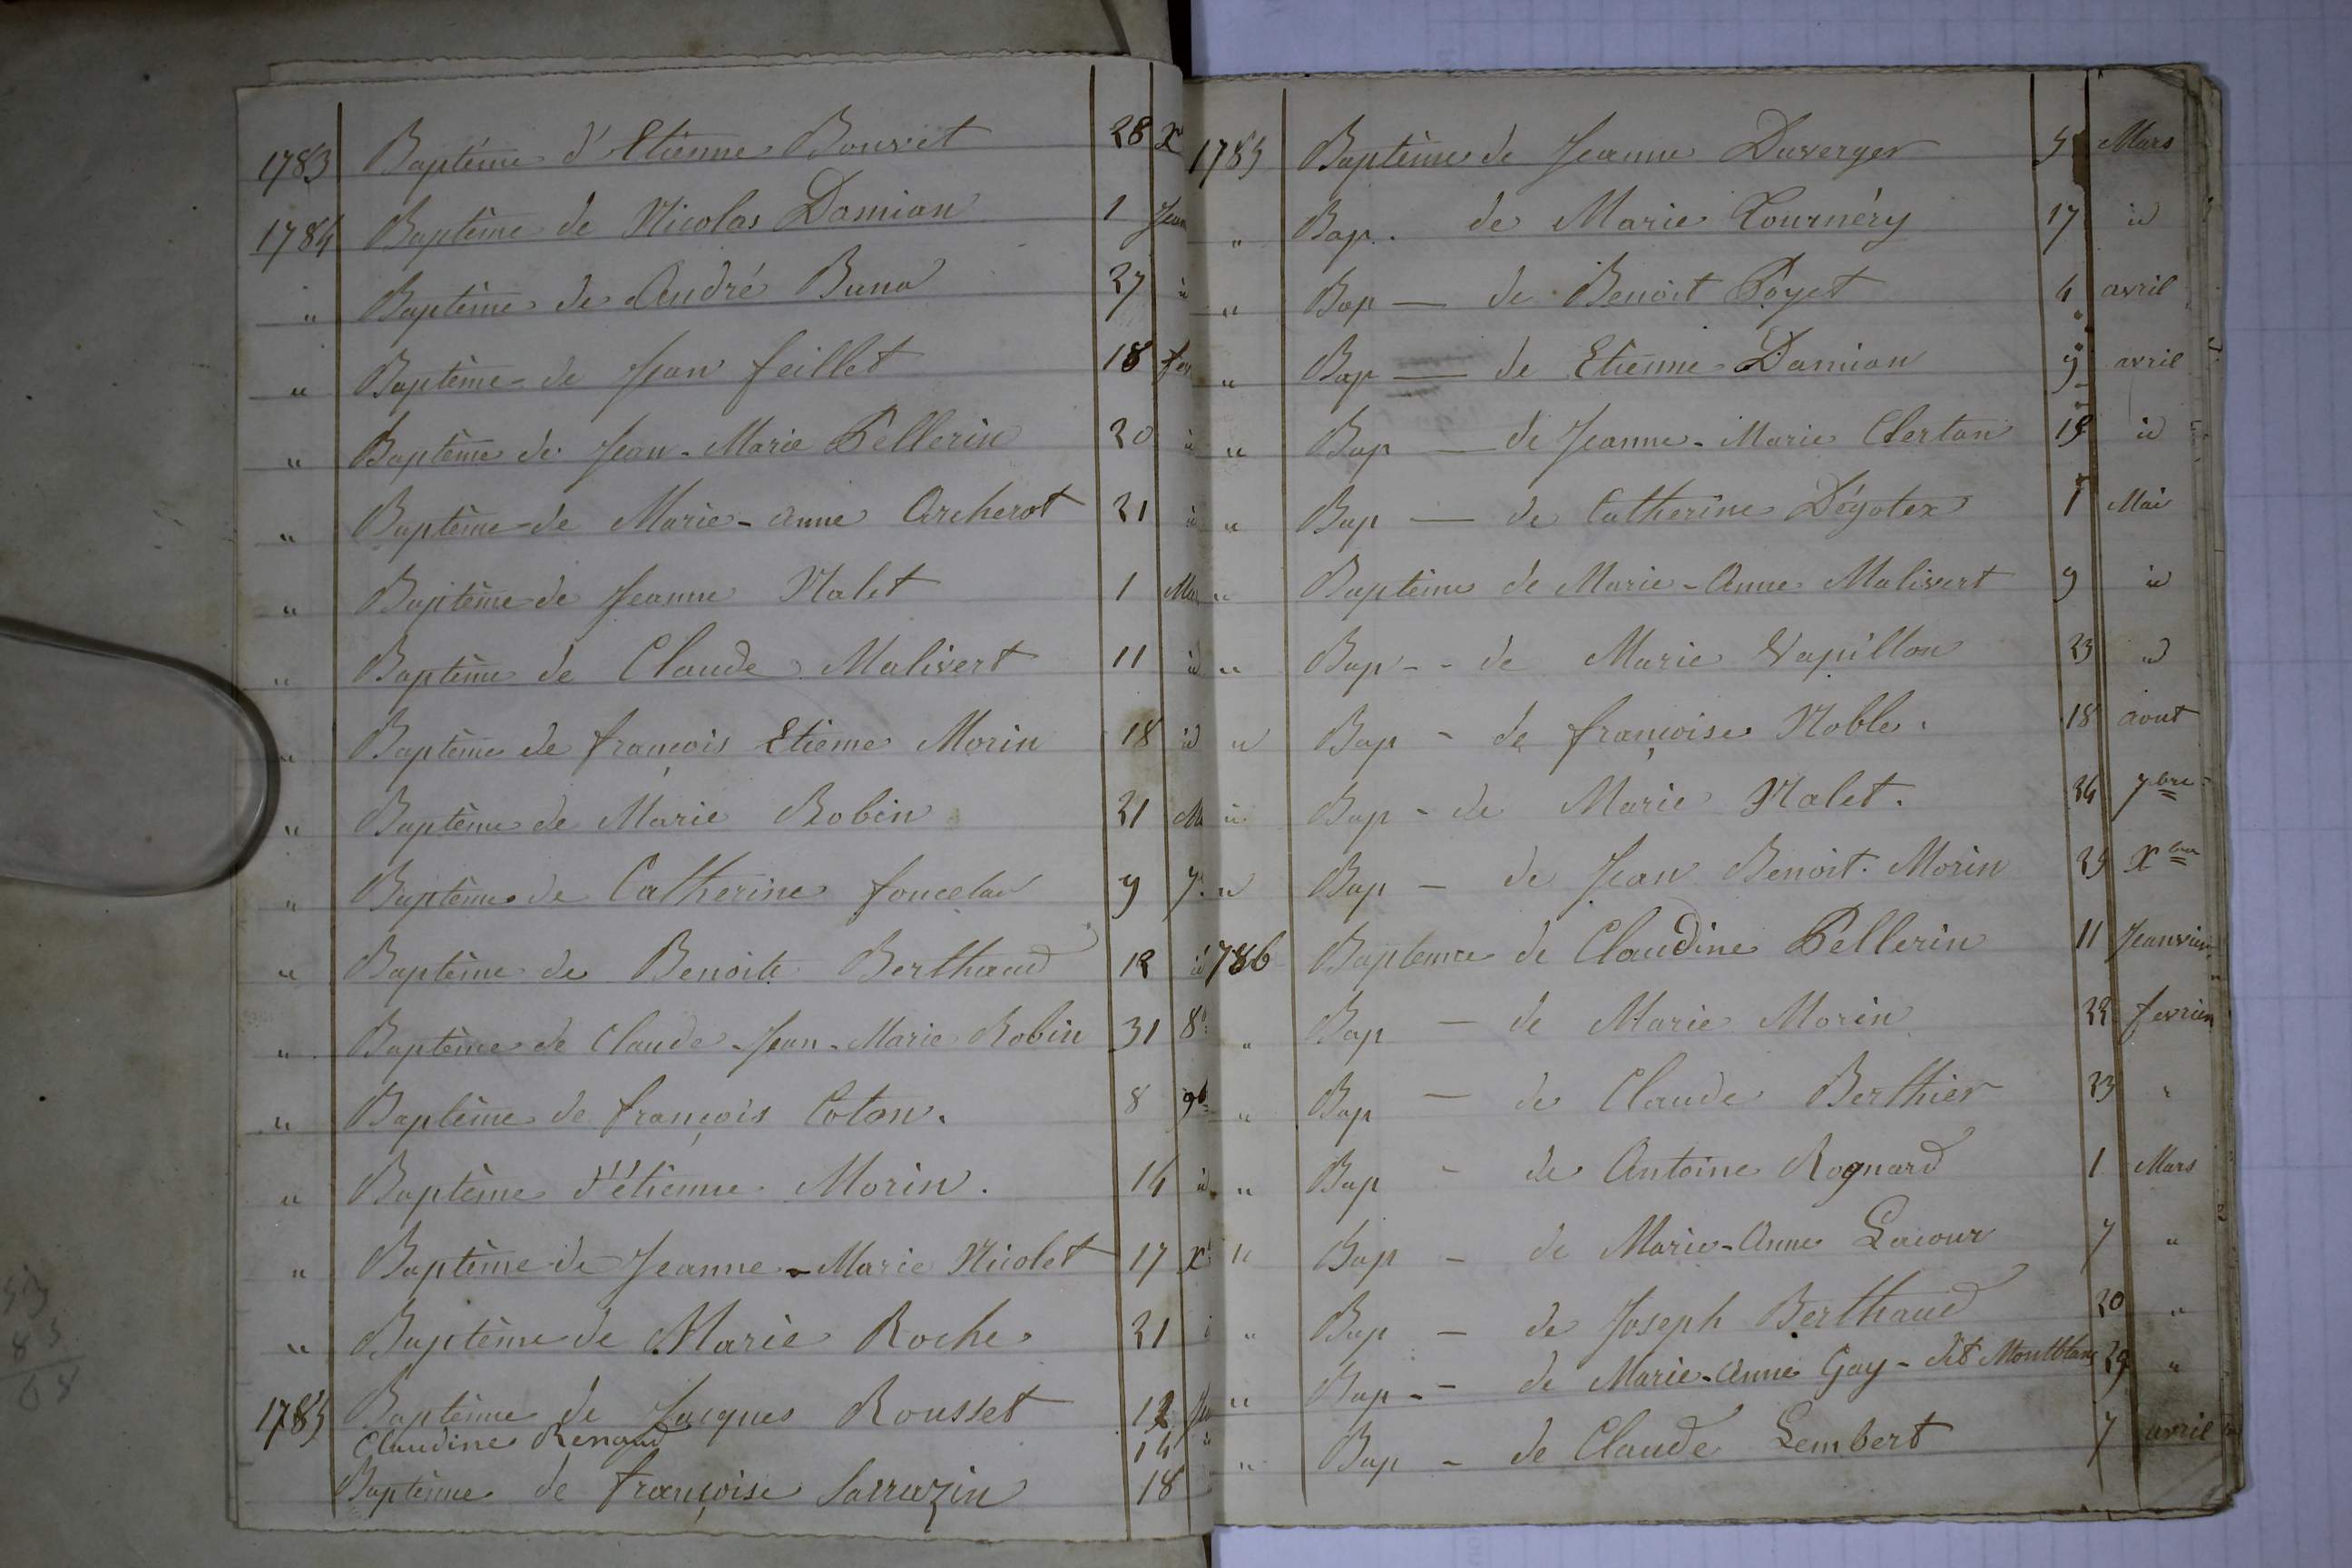 1783 Baptême d'Etienne Bouvet 28 X
1784 Baptême de Nicolas Damian 1 Jean
" Baptême de André Buna 27 id
" Baptême de Jean feillet 18 fev
" Baptême de Jean-Marie Pellerin 20 id
" Baptême de Marie-anne Archerot 21 id
" Baptême de Jeanne Nalet 1 Mar
" Baptême de Claude Malivert 11 id
" Baptême de françois Etieme Morin 18 id
" Baptême de Marie Robin 21 Ma
" Baptême de Catherine 9 7
" Baptême de Benoite Berthaud 12 id
" Baptême de Claude-Jean-Marie Robin 31 8
" Baptême de françois Coton. 8 9b
" Baptême d'étienne Morin. 14 id
" Baptême de Jeanne-Marie Nicolet 17 X
" Baptême de Marie Roche 21 i
1785 Baptême de Jacques Rousset 12
Claudine Renaud 14 "
Baptême de françoise Sarrazin 18
1785 Baptême de Jeanne Duverger 5 Mars
" Bap. de Marie Tournéry 17 id
" Bap — de Benoit Poyet 4 avril
" Bap — de Etienne Damian 9 avril
" Bap — de Jeanne-Marie Clertan 19 id
" Bap — de Catherine Dégotex 1 Mai
" Baptême de Marie-Anne Malivert 9 id
" Bap - - de Marie Vapillon 23 id
" Bap - de françoise Noble. 18 aout
" Bap - de Marie Nalet. 24 7bre
" Bap — de Jean Benoit Morin 25 Xbre
786 Bapteme de Claudine Pellerin 11 Jeanvier
" Bap — de Marie Morin 22 fevrier
" Bap — de Claude Berthier 23 "
" Bap - de Antoine Rognard 1 Mars
" Bap - de Marie-Anne Lacour 7 "
" Bap — de Joseph Berthaud 20 "
" Bap - - de Marie-Anne Gay-dit Montblanc 29 "
" Bap - de Claude Lembert 7 avril